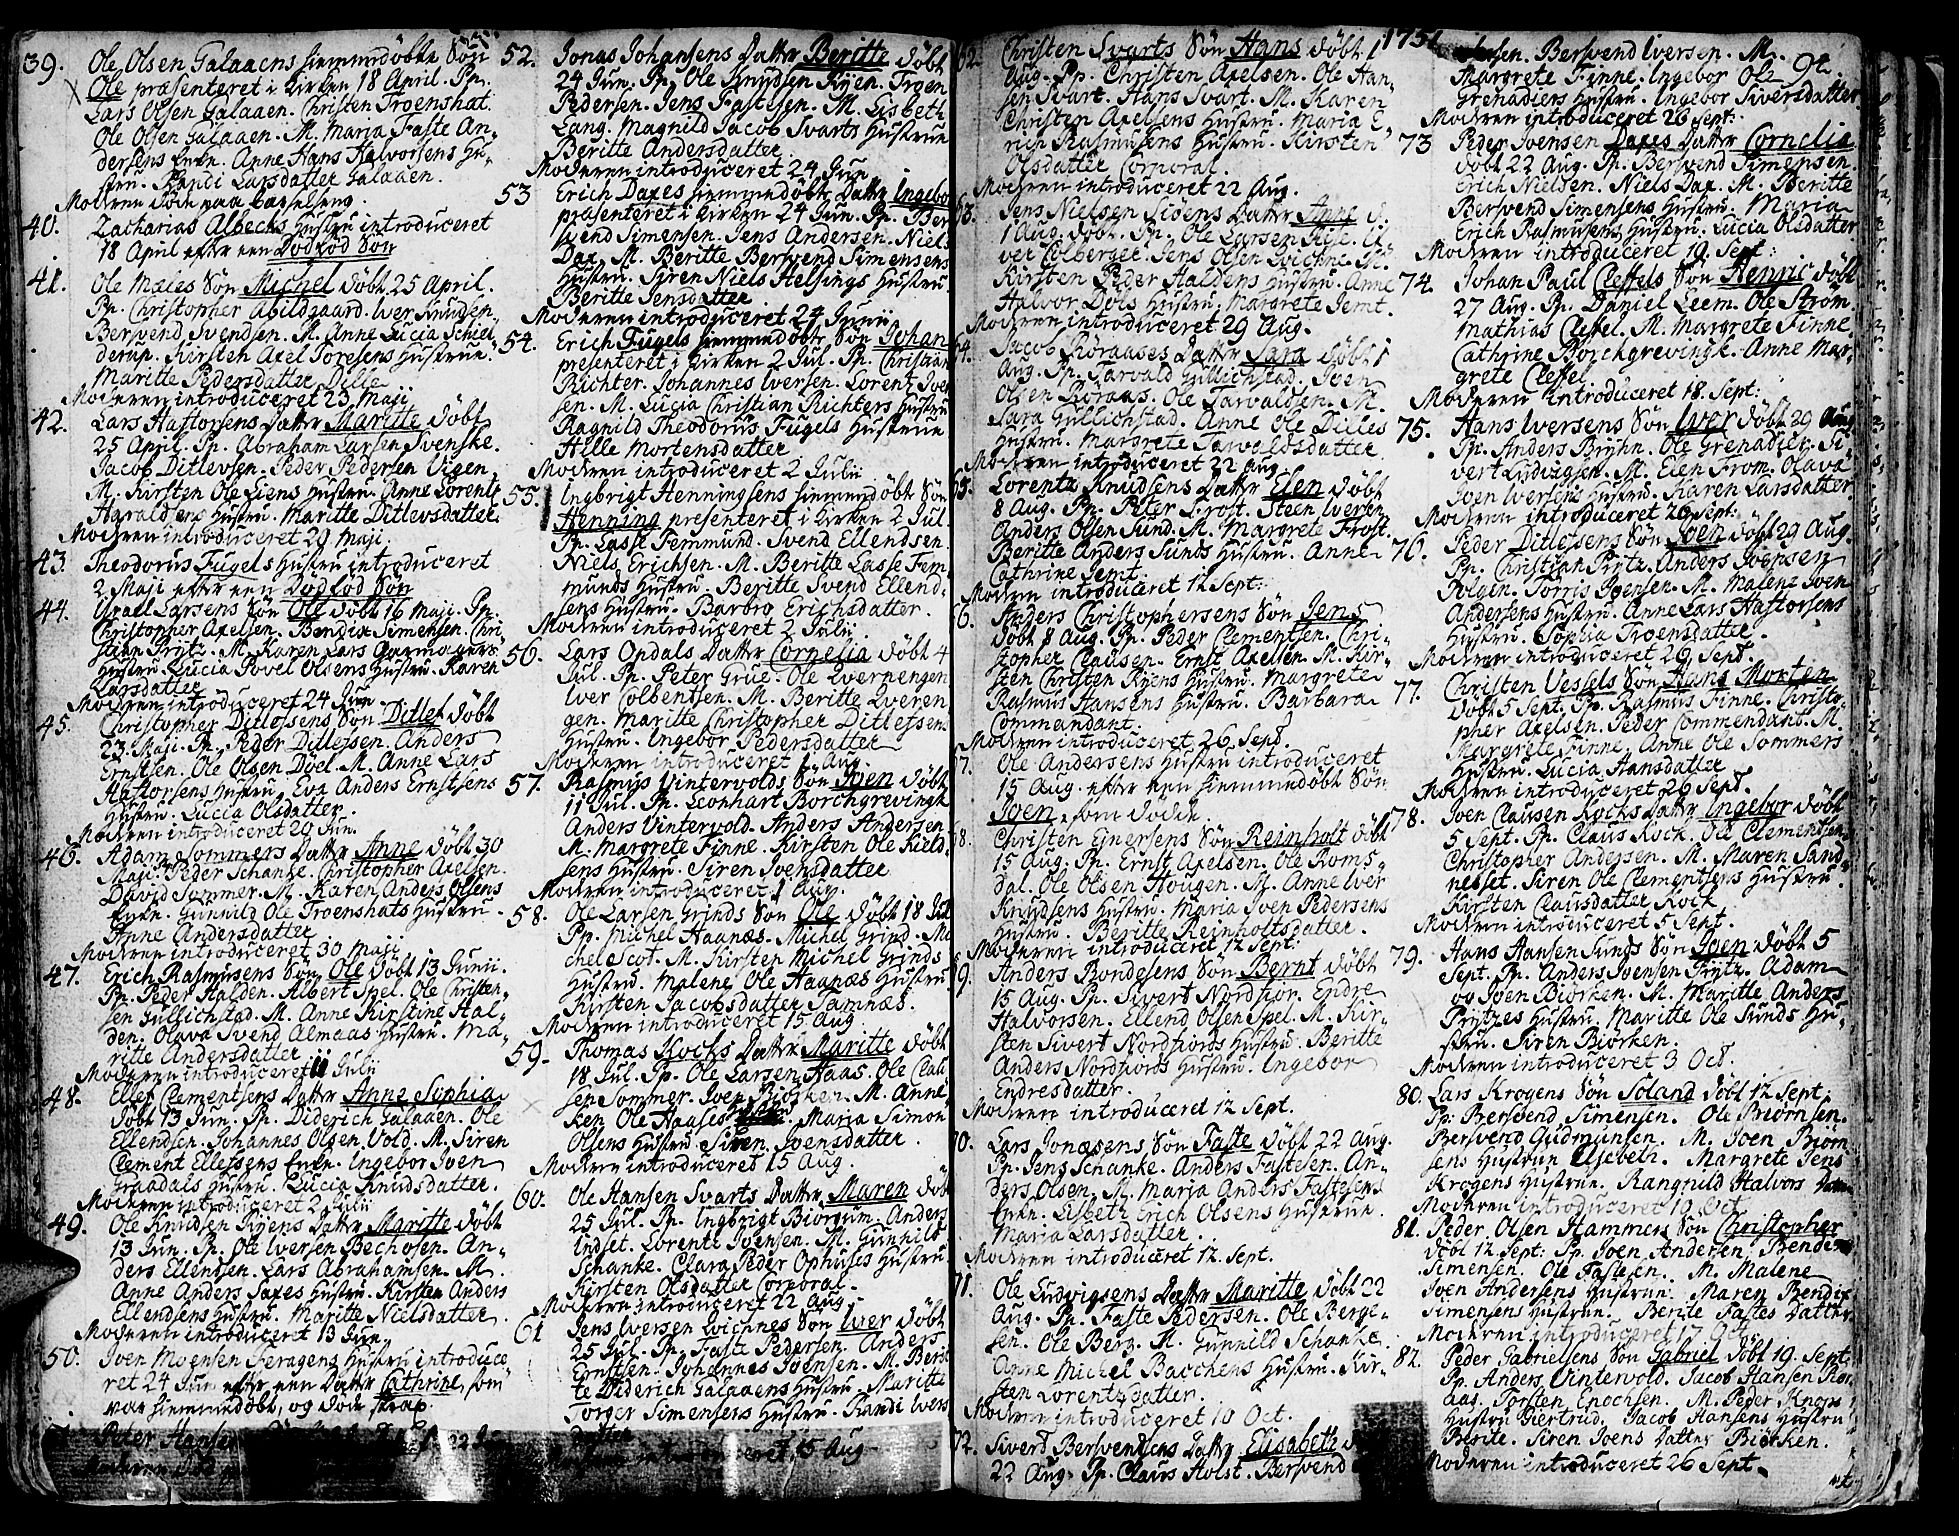 39. Ole Olsen Galaaens hiemmedöbte Sön
Ole præsenteret i Kirken 18 April. Pp.
Lars Olsen Galaaen. Christen Troenshat.
Ole Olsen Galaaen. M. Maria Faste An-
dersens Enke. Anne Hans Halvorsens Hu-
stru. Randi Larsdatter Galaaen.
Moderen döde paa barselseng.
40. Zacharias Albechs Hustru introduceret
18 April efter een Dödföd Sön
41. Ole Mæles Sön Michel döbt 25 April.
Pp. Christopher Abildgaard. Iver Knudsen.
Bersvend Svendsen. M. Anne Lucia Schiel-
derup. Kirsten Axel Joresens Hustrue.
Maritte Pedersdatter Dille
Moderen introduceret 23 Maji
42. Lars Haftorsens Datter Maritte döbt
25 April. Pp. Abraham Larsen Svenske.
Jacob Ditlevsen. Peder Pedersen Vigen.
M. Kirsten Ole Liens Hustru. Anne Lorentz
Haraldsens Hustru. Maritte Ditlevsdatter.
Moderen introduceret 29 Maji.
43. Theodorus Fugels Hustru introduceret
2 Maji efter een Dödföd Sön
44. Israel Larsens Sön Ole döbt 16 Maji. Pp.
Christopher Axelsen. Bendix Simensen. Chri-
stian Pritz. M. Karen Lars Garmagers
Hustru. Lucia Povel Olsens Hustru. Karen
Larsdatter
Moderen introduceret 24 Jun
45. Christopher Ditlefsens Sön Ditlef döbt
23 Maji. Pp. Peder Ditlefsen. Anders
Ernstsen. Ole Olsen Doel. M. Anne Lars
Haftorsens Hustru. Eva Anders Ernstsens
Hustru. Lucia Olsdatter.
Moderen introduceret 20 Jun.
46. Adam Sommers Datter Anne döbt 30
Maji. Peder Schanke. Christopher Axelsen.
David Sommer. M. Karen Anders Olsens
Enke. Gunnild Ole Troenshats Hustru.
Anne Andersdatter
Moderen introduceret 30 Maji
47. Erich Rasmusens Sön Ole döbt 13 Junii.
Pp. Peder Halden. Albert Spel. Ole Christen-
sen Gullichstad. M. Anne Kirstine Hal-
den. Olava Svend Almaas Hustru. Ma-
ritte Andersdatter.
Moderen introduceret 11 Julii
48. Ellef Clementsens Datter Anne Sophia
döbt 13 Jun. Pp. Diderich Galaaen. Ole
Ellendsen. Johannes Olsen Vold. M. Siren
Clement Ellefsens Enke. Ingebor Joen
Graadals Hustru. Lucia Knudsdatter.
Moderen introduceret 2 Julii
49. Ole Knudsen Ryens Datter Maritte döbt
13 Jun. Pp. Ole Iversen Bechosen. An-
ders Ellendsen. Lars Abrahamsen. M.
Anne Anders Saxes Hustru. Kirsten Anders
Ellendsens Hustru. Maritte Nielsdatter.
Moderen introduceret 13 Jun.
50. Joen Moensen Feragens Hustru introduce-
ret 24 Jun efter een Datter Cathrine som
var hiemmedöbt, og döde strax.
Peter Hansen
52. Jonas Johansens Datter Beritte döbt
24 Jun. Pp. Ole Knudsen Ryen. Troen
Pedersen. Jens Fastesen. M. Lisbeth
Lang. Magnild Jacob Svarts Hustrue
Beritte Andersdatter
Moderen introduceret 24 Jun
53 Erich Daxes hiemmedöbte Datter Ingebor
præsenteret i Kirken 24 Jun. Pp. Ber-
svend Simensen. Jens Andersen. Niels
Dax. M. Beritte Bersvend Simensens
Hustru. Siren Niels Helsings Hustru
Beritte Jensdatter
Moderen introduceret 24 Junii
54. Erich Fugels hiemmedöbte Sön Johan
presenteret i Kirken 2 Jul. Pp. Christian
Richter. Johannes Iversen. Lorentz Iver-
sen. M. Lucia Christian Richters Hustru
Ragnild Theodorus Fugels Hustrue
Hille Mortensdatter
Moderen introduceret 2 Julii
55. Ingbrigt Henningsens hiemmedöbt Sön
Henning presenteret i Kirken 2 Jul.
Pp. Lasse Femmund. Svend Ellendsen.
Niels Erichsen. M. Beritte Lasse Fem-
munds Hustru. Beritte Svend Ellend-
sens Hustru. Barbro Erichsdatter.
Moderen introduceret 2 Julii
56. Lars Opdals Datter Cornelia döbt 4
Jul. Pp. Peter Grue. Ole Qvernengen
Iver Colbentsen. M. Beritte Qveren-
gen. Maritte Christopher Ditlefsens
Hustru. Ingebor Pedersdatter
Moderen introduceret 1 Aug.
57. Rasmus Vintervolds Sön Joen döbt
11 Jul. Pp. Leonhart Borchgrevingk
Anders Vintervold. Anders Andersen
M. Margrete Finne. Kirsten Ole Kield-
sens Hustru. Siren Svensdatter
Moderen introduceret 1 Aug.
58. Ole Larsen Grinds Sön Ole döbt 18 Jul
Pp. Michel Haanæs. Michel Grind. Mi-
chel Scot. M. Kirsten Michel Grinds
Hustru. Malene Ole Haanæs Hustru
Kirsten Jacobsdatter Samnæs.
Moderen introduceret 15 Aug
59. Thomas Kocks Datter Maritte döbt
18 Jul. Pp. Ole Larsen Haas. Ole Clau-
sen Sommer. Joen Biörken. M. Anne
ken Ole Haases. Maria Simon
Olsens Hustru. Siren Svensdatter.
Moderen introduceret 15 Aug.
60. Ole Hansen Svarts Datter Maren döbt
25 Jul. Pp. Ingbrigt Biörgum. Anders
Indset. Lorentz Svensen. M. Gunnild
Schanke. Clara Peder Ophuses Hustru
Kirsten Olsdatter Corporal.
Moderen introduceret 22 Aug
61 Jens Iversen Qvichnes Sön Iver döbt
25 Jul. Pp. Faste Pedersen. Anders
Ernstsen. Johannes Joensen. M. Berit-
te Diderich Galaaens Hustru. Maritte
Torger Simensens Hustru. Randi Ivers-
datter
introduceret 15 Aug
1751
62. Christen Svarts Sön Hans döbt 1
Aug. Pp. Christen Axelsen. Ole Han-
sen Svart. Hans Svart. M. Karen
Christen Axelsens Hustru. Maria E-
rich Rasmusens Hustru. Kirsten
Olsdatter Corporal.
Moderen introduceret 22 Aug.
63. Jens Nielsen Siöens Datter Anne d.
1 Aug. döbt. Pp. Ole Larsen Riise. Ci-
ver Colberger. Jens Olsen Qvichne. M.
Kirsten Peder Haldens Hustru. Anne
Halvor Döls Hustru. Margrete Jemt.
Moderen introduceret 29 Aug.
64. Jacob Röraases Datter Sara döbt 1
Aug. Pp. Tarvald Gullichstad. Joen
Olsen Röraas. Ole Tarvaldsen. M.
Sara Gullichstad. Anne Ole Dilles
Hustru. Margrete Tarvaldsdatter.
Moderen introduceret 22 Aug
65. Lorentz Knudsens Datter Elen döbt
8 Aug. Pp. Peter Frost. Steen Iversen
Anders Olsen Sund. M. Margrete Frost.
Beritte Anders Sunds Hustru. Anne
Cathrine Jemt.
Moderen introduceret 12 Sept:
66. Anders Christophersens Sön Jens
döbt 8 Aug. Pp. Peder Clementsen. Chri-
stopher Clausen. Ernst Axelsen. M. Kir-
sten Christen Ryens Hustru. Margrete
Rasmus Hansens Hustru. Barbara
Commandant.
Moderen introduceret 26 Sept.
67. Ole Andersens Hustru introduceret
15 Aug. efter een hiemmedöbt Sön
Joen, som döde.
68. Christen Ejnersens Sön Reinholt döbt
15 Aug. Pp. Ernst Axelsen. Ole Roms-
dal. Ole Olsen Hougen. M. Anne Iver
Knudsens Hustru. Maria Joen Pedersens
Hustru. Beritte Reinholtsdatter.
Moderen introduceret 12 Sept:
69. Anders Rondesens Sön Bernt döbt
15 Aug. Pp. Sivert Nordfior. Endre
Halvorsen. Ellend Olsen Spel. M. Kir-
sten Sivert Nordfiords Hustru. Beritte
Anders Nordfiords Hustru. Ingebor
Endresdatter.
Moderen introduceret 12 Sept.
70. Lars Jonæsens Sön Faste döbt 22 Aug.
Pp. Jens Schanke. Anders Fastesen. An-
ders Olsen. M. Maria Anders Fastesens
Enke. Lisbeth Erich Olsens Hustrue.
Maria Larsdatter.
Moderen introduceret 12 Sept.
71. Ole Ludvigsens Datter Maritte döbt 22
Aug. Pp. Faste Pedersen. Ole Berge-
sen. Ole Berg. M. Gunnild Schanke.
Anne Michel Bacchens Hustru. Kir-
sten Lorentzdatter.
Moderen introduceret 10 Oct.
72. Siverd Bersvendsens Datter Elisabeth
22 Aug. Pp. Claus Holst. Bersvend
Bersvend Iversen. M.
Margrete Finne. Ingebor Ole
Grenadiers Hustru. Ingebor Siversdatter
Moderen introduceret 26 Sept:
73 Peder Joensen Daxes Datter Cornelia
döbt 22 Aug. Pp. Bersvend Simensen.
Erich Nielsen. Niels Dax. M. Beritte
Bersvend Simensens Hustru. Maria
Erich Rasmusens Hustru. Lucia Olsdatter
Moderen introduceret 19 Sept:
74. Johan Paul Cleffels Sön Henric döbt
27 Aug. Pp. Daniel Leem. Ole Strom
Mathias Cleffel. M. Margrete Finne
Cathrine Borchgrevingk. Anne Mar-
grete Cleffel
Moderen introduceret 18 Sept:
75. Hans Iversens Sön Iver döbt 29 Aug
Pp. Anders Bryhn. Ole Grenadier. Si-
vert Ludvigsen. M. Elen Strom. Olava
Joen Iversens Hustru. Karen Larsdatter.
Moderen introduceret 26 Sept:
76. Peder Ditlefsens Sön Joen döbt 29 Aug.
Pp. Christian Pritz. Anders Joensen
Folgen. Torris Joensen. M. Malene Joen
Andersens Hustru. Anne Lars Haftorsens
Hustru. Sophia Troensdatter.
Moderen introduceret 29 Sept.
77. Christen Vessels Sön Hans Morten
döbt 5 Sept. Pp. Rasmus Finne. Christo-
pher Axelsen. Peder Commendant. M.
Margrete Finne. Anne Ole Sommers
Hustru. Lucia Hansdatter
Moderen introduceret 26 Sept.
78. Joen Clausen Kocks Datter Ingebor döbt
5 Sept. Pp. Claus Kock. Ole Clementsen.
Christopher Andersen. M. Maren Sand-
nesset. Siren Ole Clementsens Hustru.
Kirsten Clausdatter Kock
Moderen introduceret 5 Sept.
79. Hans Hansen Sunds Sön Joen döbt 5
Sept. Pp. Anders Svensen Pritz. Adam
og Joen Biörken. M. Maritte Anders
Prytzes Hustru. Maritte Ole Sunds Hu-
stru. Siren Biörken.
Moderen introduceret 3 Oct.
80. Lars Krogens Sön Soland döbt 12 Sept.
Pp: Bersvend Simensen. Ole Biörnsen.
Bersvend Gudmunsen. M. Joen Biörn-
sens Hustrue Elsebeth. Margrete Jens
Krogens Hustrue. Rangnild Halvors Datter
Moderen introduceret 10 Oct.
81. Peder Olsen Hammers Sön Christopher
döbt 12 Sept: Pp. Joen Andersen. Bendix
Simensen. Ole Fastesen. M. Malene
Joen Andersens Hustrue. Maren Bendix
Simensens Hustrue. Berite Fastes Datter
Moderen introduceret 17 Oct
82. Peder Gabrielsens Sön Gabriel döbt 19. Sept:
Pp. Anders Vintervold. Jacob Hansen Rör-
aas. Torsten Enochsen. M. Peder Knops
Hustru Giertrud. Jacob Hansens Hustru
Berite. Siren Joens Datter Biörken.
Moderen introduceret 26 Sept.